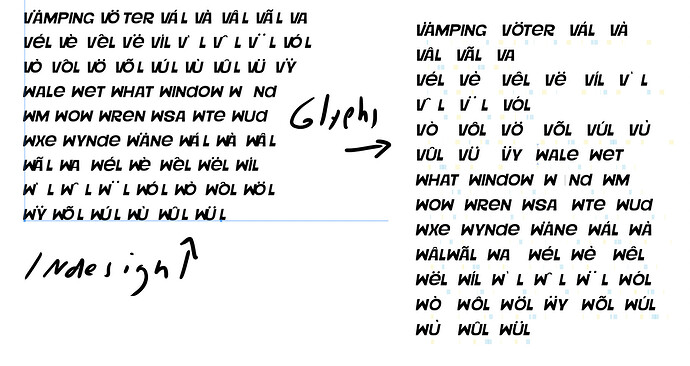 VÄMPING VÖTER VÁL VÀ VÂL VÃL VA
VÉL VÈ VÊL VË VÍL V` L V^ L V¨ L VÓL
VÒ VÔL VÖ VÕL VÚL VÙ VÛL VÜ VŸ
WALE WET WHAT WINDOW W Nd
WM WOW WREN WSA WTE WUd
WXE WYNdE WÄNE WÁL WÀ WÂL
WÃL WA WÉL WÈ WÊL WËL WÍL
W` L W^ L W¨ L WÓL WÒ WÔL WÖL
WŸ WÕL WÚL WÙ WÛL WÜL
INdesign
Glyphs
VÄMPING VÖTER VÁL VÀ
VÂL VÃL VA
VÉL VÈ VÊL VË VÍL V` L
V^ L V¨ L VÓL
VÒ VÔL VÖ VÕL VÚL VÙ
VÛL VÜ VŸ WALE WET
WHAT WINDOW W Nd WM
WOW WREN WSA WTE WUd
WXE WYNdE WÄNE WÁL WÀ
WÂLWÃL WA WÉL WÈ WÊL
WËL WÍL W` L W^ L W¨ L WÓL
WÒ WÔL WÖL WŸ WÕL WÚL
WÙ WÛL WÜL